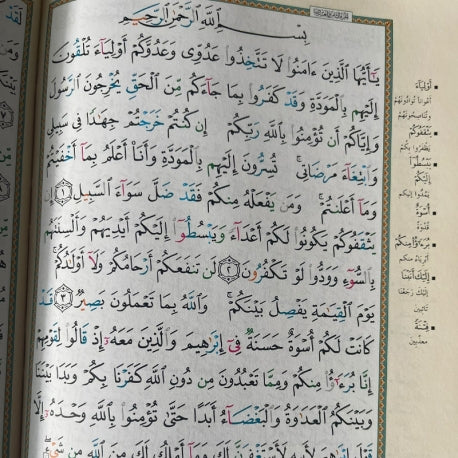 بِسْمِ اللَّهِ الرَّحْمَٰنِ الرَّحِيمِ
يَٰٓأَيُّهَا الَّذِينَ ءَامَنُوا۟ لَا تَتَّخِذُوا۟ عَدُوِّى وَعَدُوَّكُمْ أَوْلِيَآءَ تُلْقُونَ
إِلَيْهِم بِالْمَوَدَّةِ وَقَدْ كَفَرُوا۟ بِمَا جَآءَكُم مِّنَ الْحَقِّ يُخْرِجُونَ الرَّسُولَ
وَإِيَّاكُمْ أَن تُؤْمِنُوا۟ بِاللَّهِ رَبِّكُمْ إِن كُنتُمْ خَرَجْتُمْ جِهَٰدًا فِى سَبِيلِى
وَابْتِغَآءَ مَرْضَاتِى ۚ تُسِرُّونَ إِلَيْهِم بِالْمَوَدَّةِ وَأَنَا۠ أَعْلَمُ بِمَآ أَخْفَيْتُمْ
وَمَآ أَعْلَنتُمْ ۚ وَمَن يَفْعَلْهُ مِنكُمْ فَقَدْ ضَلَّ سَوَآءَ السَّبِيلِ ١ إِن
يَثْقَفُوكُمْ يَكُونُوا۟ لَكُمْ أَعْدَآءً وَيَبْسُطُوٓا۟ إِلَيْكُمْ أَيْدِيَهُمْ وَأَلْسِنَتَهُم
بِالسُّوٓءِ وَوَدُّوا۟ لَوْ تَكْفُرُونَ ٢ لَن تَنفَعَكُمْ أَرْحَامُكُمْ وَلَآ أَوْلَٰدُكُمْ ۚ
يَوْمَ الْقِيَٰمَةِ يَفْصِلُ بَيْنَكُمْ ۚ وَاللَّهُ بِمَا تَعْمَلُونَ بَصِيرٌ ٣ قَدْ
كَانَتْ لَكُمْ أُسْوَةٌ حَسَنَةٌ فِىٓ إِبْرَٰهِيمَ وَالَّذِينَ مَعَهُۥٓ إِذْ قَالُوا۟ لِقَوْمِهِمْ
إِنَّا بُرَءَٰٓؤُا۟ مِنكُمْ وَمِمَّا تَعْبُدُونَ مِن دُونِ اللَّهِ كَفَرْنَا بِكُمْ وَبَدَا بَيْنَنَا
وَبَيْنَكُمُ الْعَدَٰوَةُ وَالْبَغْضَآءُ أَبَدًا حَتَّىٰ تُؤْمِنُوا۟ بِاللَّهِ وَحْدَهُۥٓ إِلَّا
قَوْلَ إِبْرَٰهِيمَ لِأَبِيهِ لَأَسْتَغْفِرَنَّ لَكَ وَمَآ أَمْلِكُ لَكَ مِنَ اللَّهِ مِن شَىْءٍ
أَوْلِيَآءَ
أعوانًا توادّونهم
وتناصحونهم
يَثْقَفُوكُمْ
يظفروا بكم
يَبْسُطُوٓا۟
إِلَيْكُمْ
يمدوا إليكم
أُسْوَةٌ
قدوة
بُرَءَٰٓؤُا۟ مِنكُمْ
أبرياء منكم
إِلَيْكَ أَنَبْنَا
إليك رجعنا
تائبين
فِتْنَةً
معذبين